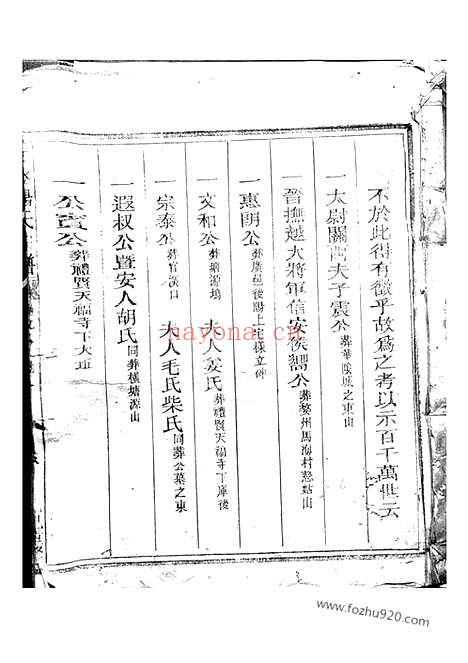 不於此得有徵乎故為之考以示百千萬世云
一太尉關西夫子震公葬華陰城之東山
一晉撫越大將軍信安侯公葬婺州馬海村
一惠明公葬廣邑後陽上社立碑
一文和公葬塘源塢 夫人姜氏葬禮賢天福寺下庫後
宗泰公葬官源口 夫人毛氏柴氏同葬公墓之東
一遐叔公暨安人胡氏同葬橫塘源山
一公實公葬禮賢天福寺下大
nayona.cn
www.fozhu920.com